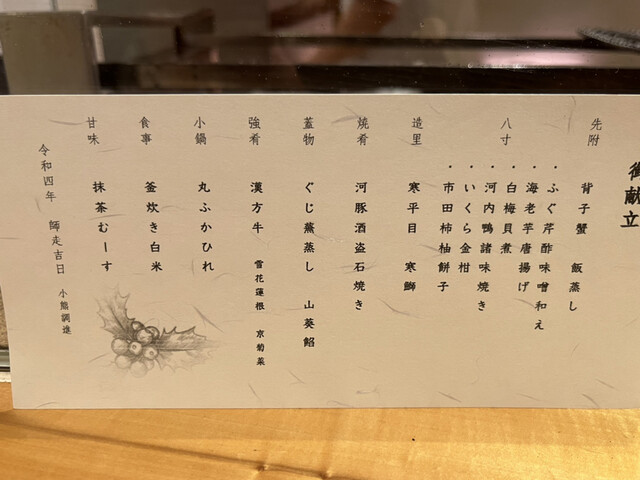 御献立
先附
背子蟹　飯蒸し
八寸
・ふぐ芹酢味噌和え
・海老芋唐揚げ
・白梅貝煮
・河内鴨諸味焼き
・いくら金柑
・市田柿柚餅子
造里
寒平目　寒鰤
焼肴
河豚酒盗石焼き
蓋物
ぐじ蕪蒸し　山葵餡
強肴
漢方牛　雪花蓮根　京菊菜
小鍋
丸ふかひれ
食事
釜炊き白米
甘味
抹茶むーす
令和四年　師走吉日　小熊調進